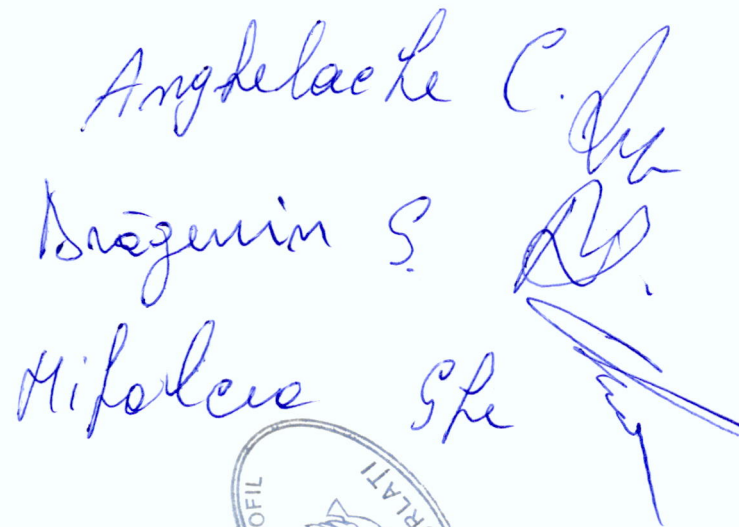 Anghelache C.
Drăgenin S.
Mihalcea Ghe
OFIL
RLAȚI